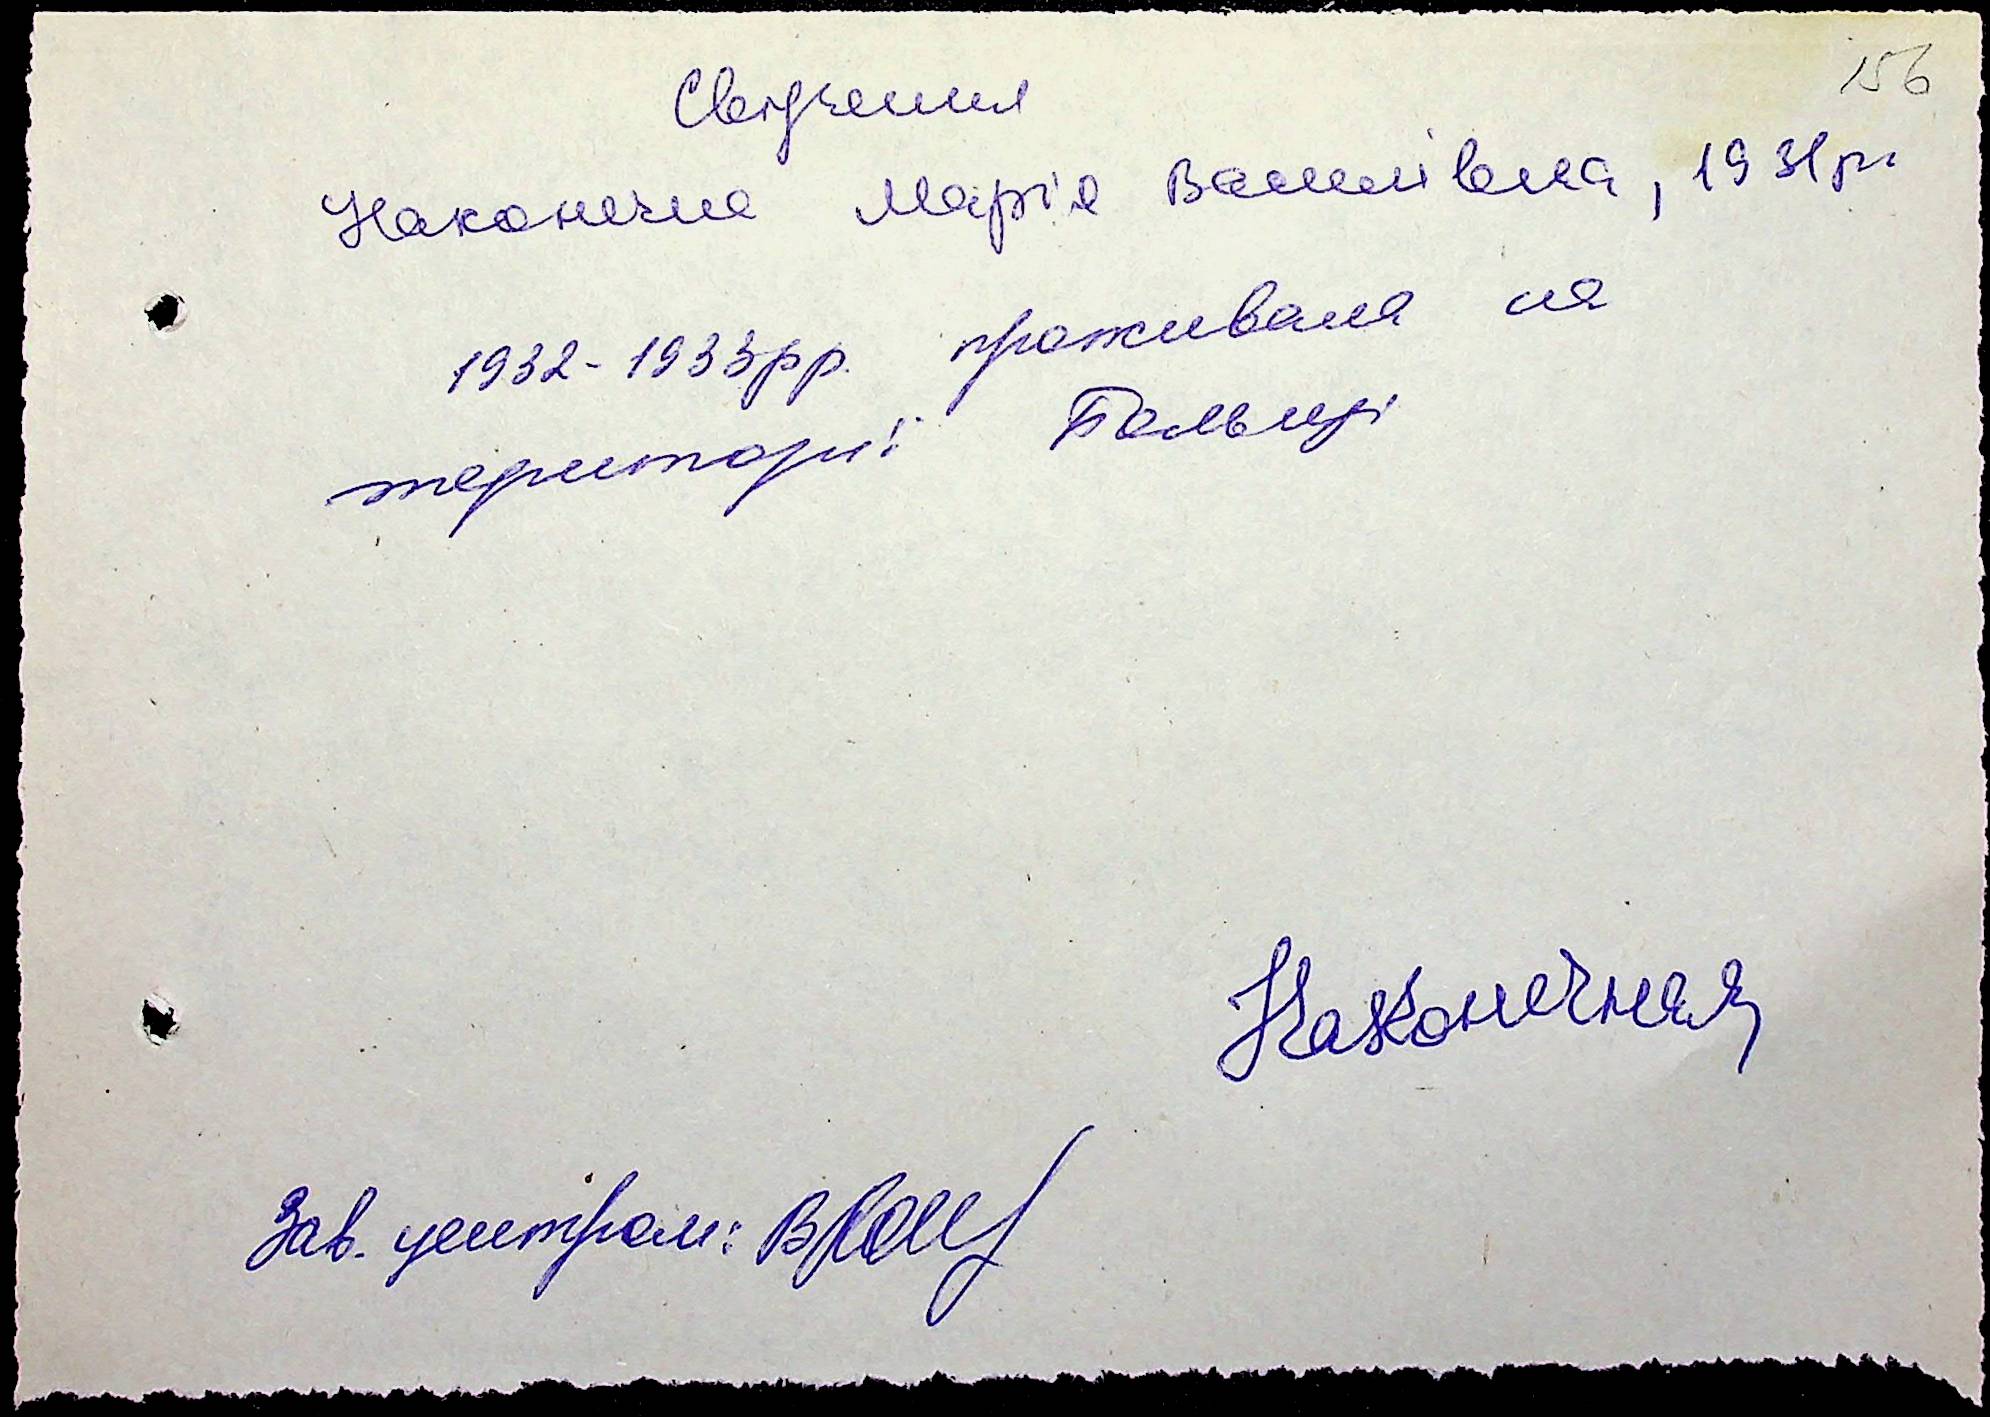 156
Свідчення
Наконечна Марія Василівна, 1931 рн
1932-1933 рр. проживала на
території Польщі
Наконечная
Зав. центром: